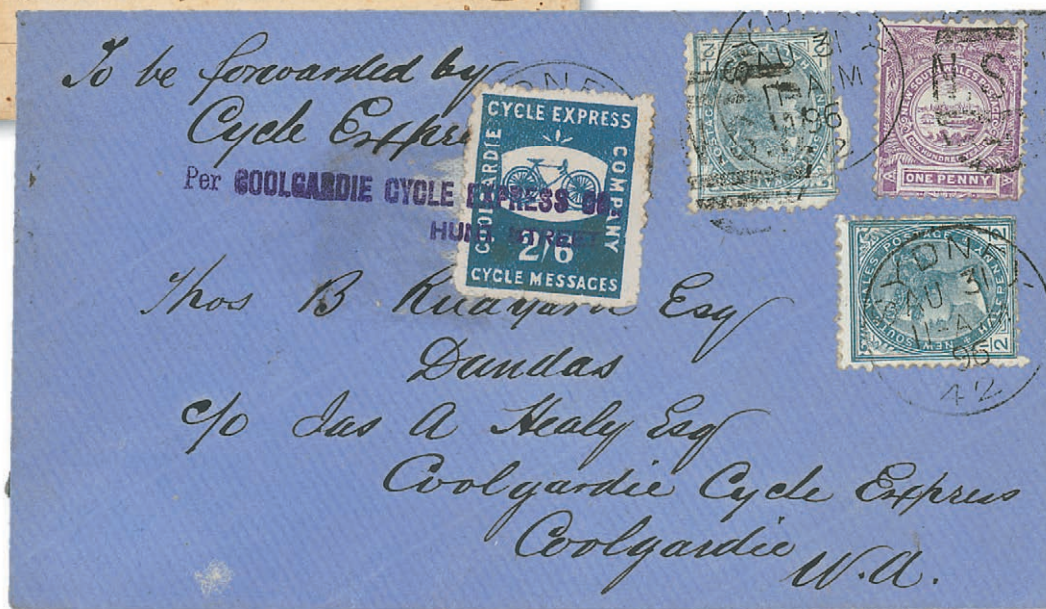 To be forwarded by
Cycle Expre
Per COOLGARDIE CYCLE EXPRESS CO.
HUNT STREET
CYCLE EXPRESS
COOLGARDIE
COMPANY
2/6
CYCLE MESSAGES
ONE PENNY
N.S.
SYDNEY
AU 31
11 AM
96
42
NEW SOUTH WALES POSTAGE
Thos B Esq
Dundas
c/o Jas A Healy Esq
Coolgardie Cycle Express
Coolgardie
W.A.